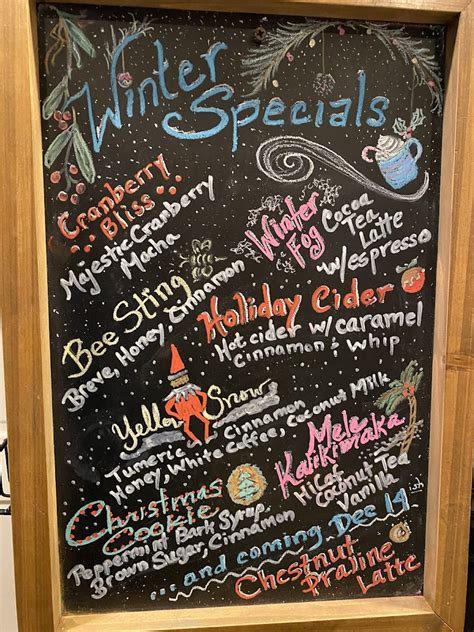 Winter
Specials
Cranberry
Bliss
Majestic Cranberry
Mocha
Winter
Fog
Cocoa
Tea
Latte
w/espresso
Bee Sting
Breve, Honey, Cinnamon
Holiday Cider
Hot cider w/ caramel
Cinnamon & whip
Yellow Snow
Tumeric, Cinnamon
Honey, White Coffee, Coconut Milk
Mele
Kalikimaka
HiCaf
Coconut Tea
Vanilla
Christmas
Cookie
Peppermint Bark Syrup
Brown Sugar, Cinnamon
...and coming Dec 14 ish
Chestnut
Praline
Latte